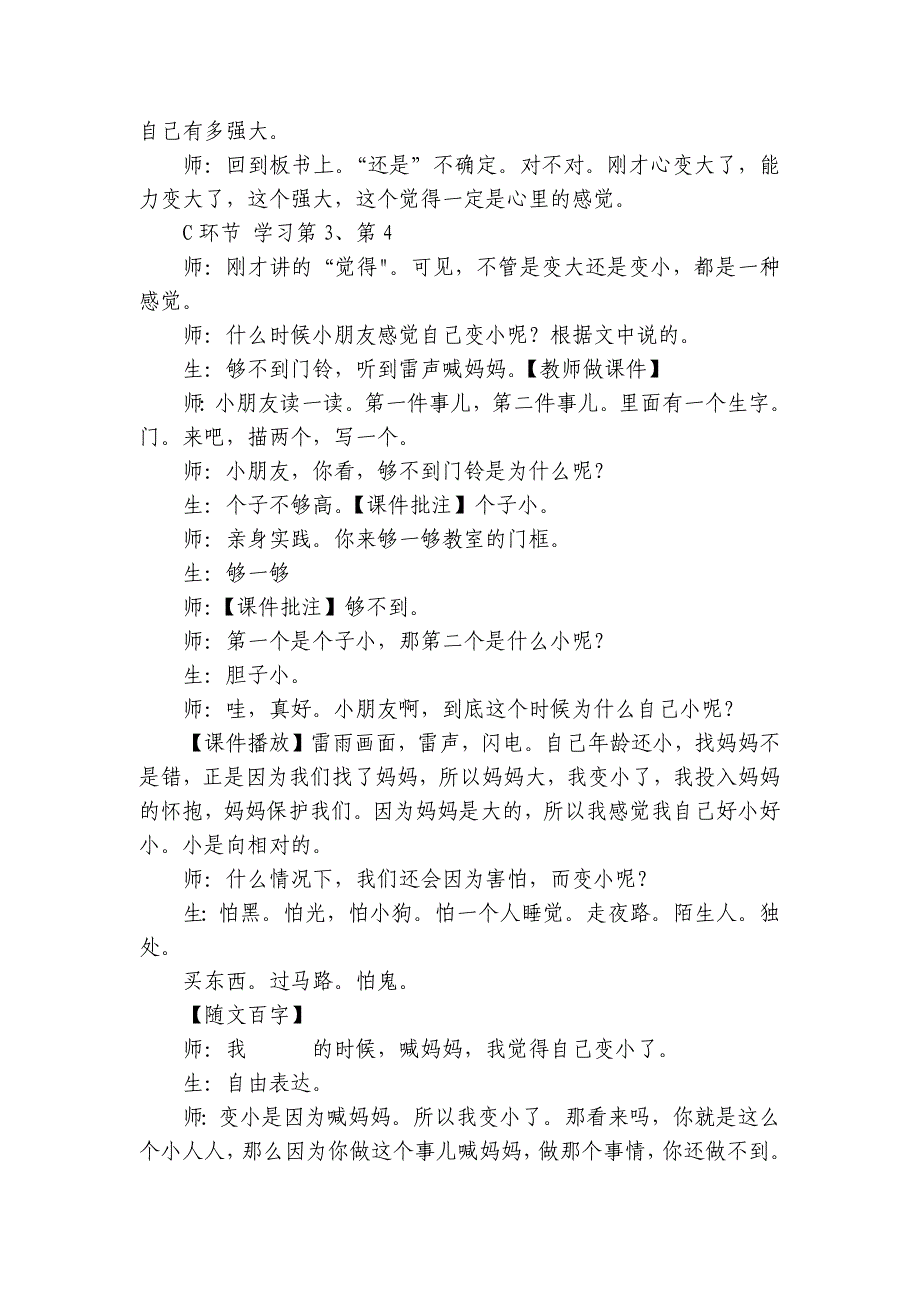 自己有多强大。
师：回到板书上。“还是”不确定。对不对。刚才心变大了，能
力变大了，这个强大，这个觉得一定是心里的感觉。
C环节 学习第3、第4
师：刚才讲的“觉得"。可见，不管是变大还是变小，都是一种
感觉。
师：什么时候小朋友感觉自己变小呢？根据文中说的。
生：够不到门铃，听到雷声喊妈妈。【教师做课件】
师：小朋友读一读。第一件事儿，第二件事儿。里面有一个生字。
门。来吧，描两个，写一个。
师：小朋友，你看，够不到门铃是为什么呢？
生：个子不够高。【课件批注】个子小。
师：亲身实践。你来够一够教室的门框。
生：够一够
师：【课件批注】够不到。
师：第一个是个子小，那第二个是什么小呢？
生：胆子小。
师：哇，真好。小朋友啊，到底这个时候为什么自己小呢？
【课件播放】雷雨画面，雷声，闪电。自己年龄还小，找妈妈不
是错，正是因为我们找了妈妈，所以妈妈大，我变小了，我投入妈妈
的怀抱，妈妈保护我们。因为妈妈是大的，所以我感觉我自己好小好
小。小是向相对的。
师：什么情况下，我们还会因为害怕，而变小呢？
生：怕黑。怕光，怕小狗。怕一个人睡觉。走夜路。陌生人。独
处。
买东西。过马路。怕鬼。
【随文百字】
师：我　　　的时候，喊妈妈，我觉得自己变小了。
生：自由表达。
师：变小是因为喊妈妈。所以我变小了。那看来吗，你就是这么
个小人人，那么因为你做这个事儿喊妈妈，做那个事情，你还做不到。